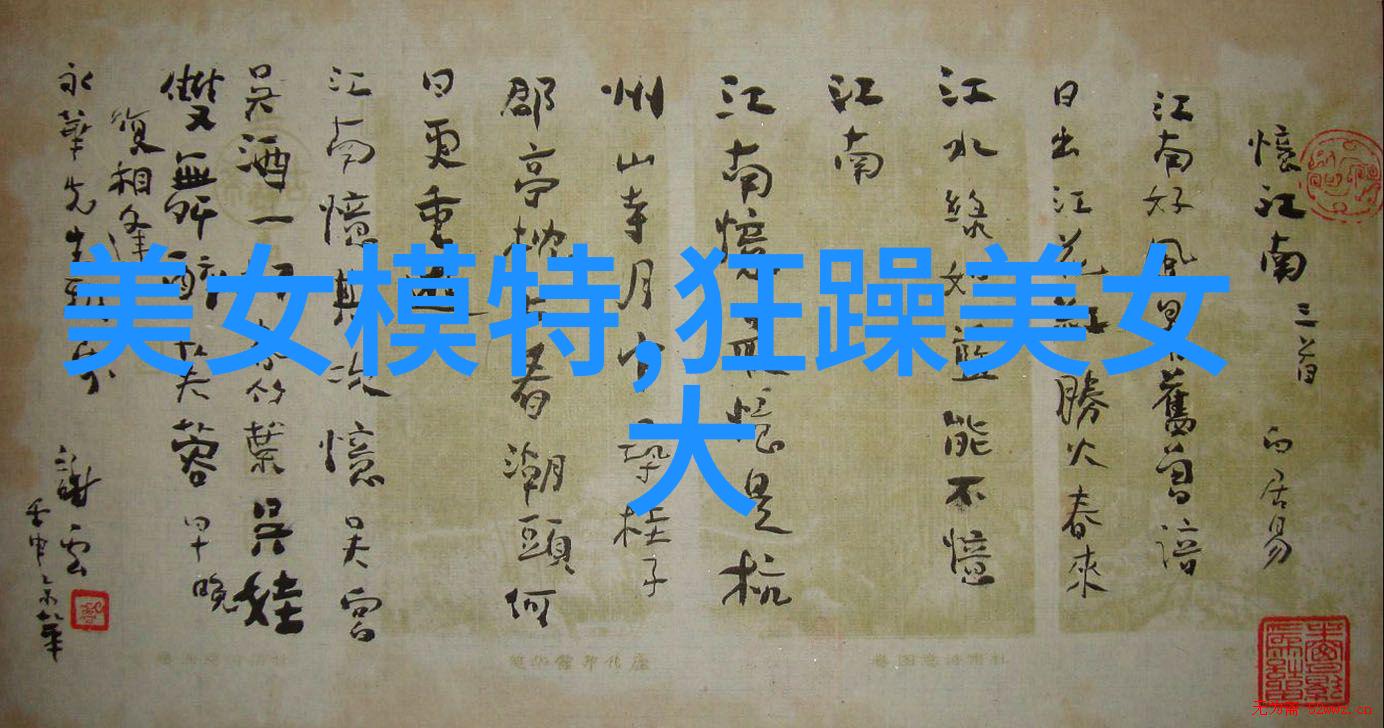 美女模特,狂躁美女
大
憶江南 三首 白居易
江南好風景舊曾諳
日出江花紅勝火春來
江水綠如藍能不憶
江南
江南憶最憶是杭
州山寺月中尋桂子
郡亭枕上看潮頭何
日更重遊
江南憶其次憶吳宮
吳酒一杯春竹葉吳娃
雙舞醉芙蓉早晚
復相逢
永華先生
謝雲